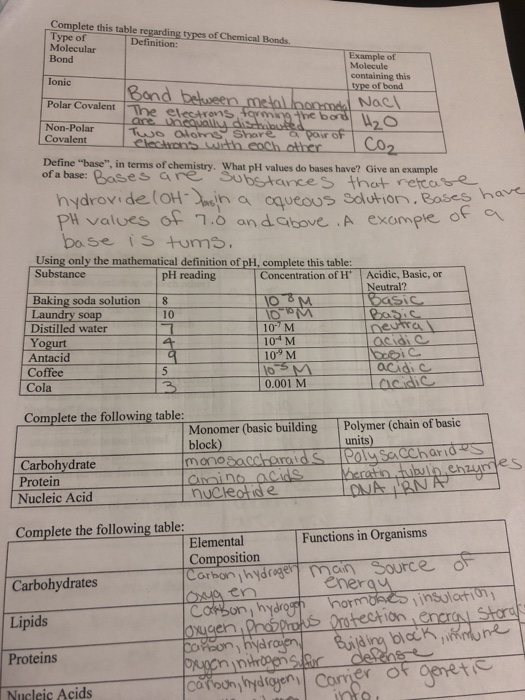 Complete this table regarding types of Chemical Bonds.
Type of Molecular Bond Definition: Example of Molecule containing this type of bond
Ionic Bond between metal/nonmetal NaCl
Polar Covalent The electrons forming the bond are unequally distributed H2O
Non-Polar Covalent Two atoms share a pair of electrons with each other CO2
Define "base", in terms of chemistry. What pH values do bases have? Give an example
of a base: Bases are substances that release
hydroxide (OH-) ions in a aqueous solution. Bases have
pH values of 7.0 and above. A example of a
base is tums.
Using only the mathematical definition of pH, complete this table:
Substance pH reading Concentration of H+ Acidic, Basic, or Neutral?
Baking soda solution 8 10-8 M Basic
Laundry soap 10 10-10 M Basic
Distilled water 7 10-7 M neutral
Yogurt 4 10-4 M acidic
Antacid 9 10-9 M basic
Coffee 5 10-5 M acidic
Cola 3 0.001 M acidic
Complete the following table:
Monomer (basic building block) Polymer (chain of basic units)
Carbohydrate monosaccharaids Polysaccharides
Protein amino acids keratin, tubulin, enzymes
Nucleic Acid nucleotide DNA, RNA
Complete the following table:
Elemental Composition Functions in Organisms
Carbohydrates Carbon, hydrogen oxygen main source of energy
Lipids Carbon, hydrogen oxygen, phosphorus hormones, insulation, protection, energy storage
Proteins carbon, hydrogen, oxygen, nitrogen, sulfur Building block, immune defense
Nucleic Acids carbon, hydrogen, Carrier of genetic info.